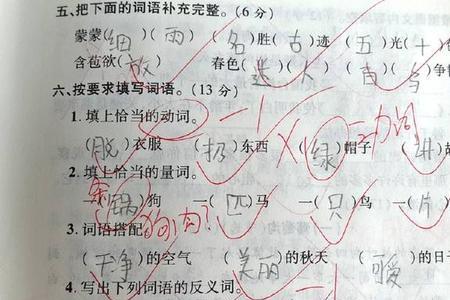 五、把下面的词语补充完整。(6分)
蒙蒙(细)(雨) (名)胜(古)迹 (五)光(十)
含苞欲(放) 春色(迷)(人) 百(鸟)争
六、按要求填写词语。(13分)
1.填上恰当的动词。 -1
(脱)衣服 (扔)东西 (绿)帽子 动词
2.填上恰当的量词。
一(锅)狗 一(匹)马 一(只)鸟 一(片)
条 狗肉?
3.词语搭配
(干净)的空气 (美丽)的秋天 (暖)的日子
4.写出下列词语的反义词。